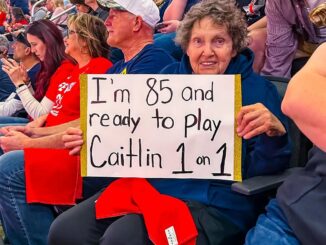 I'm 85 and
ready to play
Caitlin 1 on 1